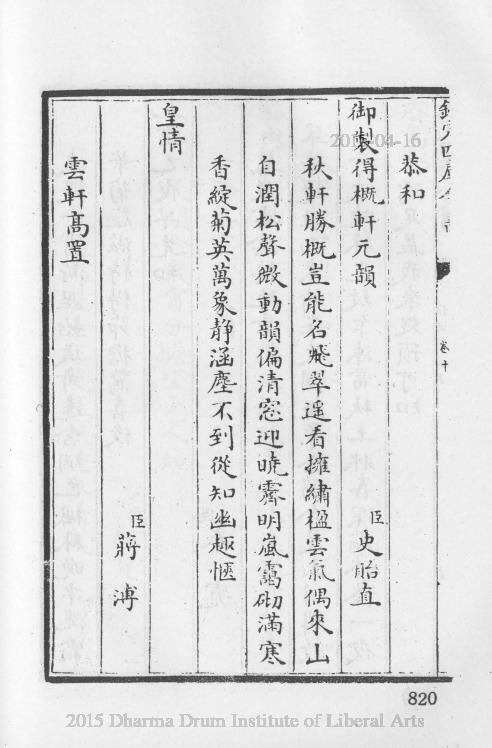 欽定四庫全書
卷十
恭和
御製得概軒元韻
臣史貽直
秋軒勝概豈能名飛翠遥看擁繡楹雲氣偶來山
自潤松聲微動韻偏清窓迎曉霽明嵐靄砌滿寒
香綻菊英萬象靜涵塵不到從知幽趣愜
皇情
臣蔣溥
雲軒高置
820
2015-04-16
2015 Dharma Drum Institute of Liberal Arts